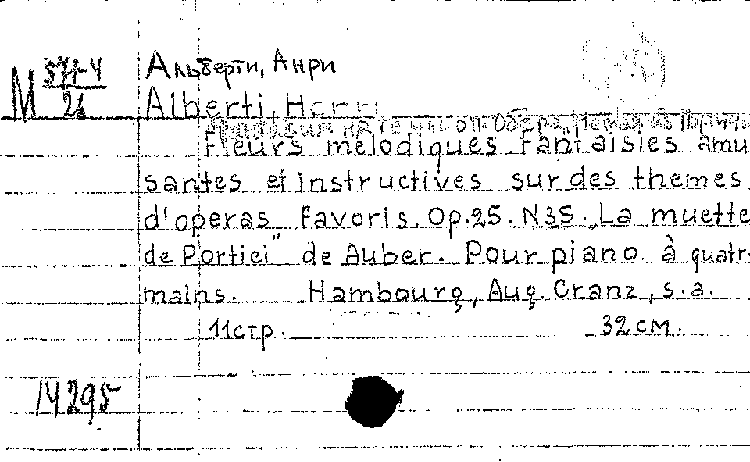 М 577-4
26
Альберти, Анри
Alberti, Henri
Fleurs melodiques Fantaisies amu
santes et instructives sur des themes
d'operas favoris. Op.25. N35. „La muette
de Portici" de Auber. Pour piano à quatr
mains. Hambourg, Aug. Cranz, s.a.
11стр. 32см.
14295